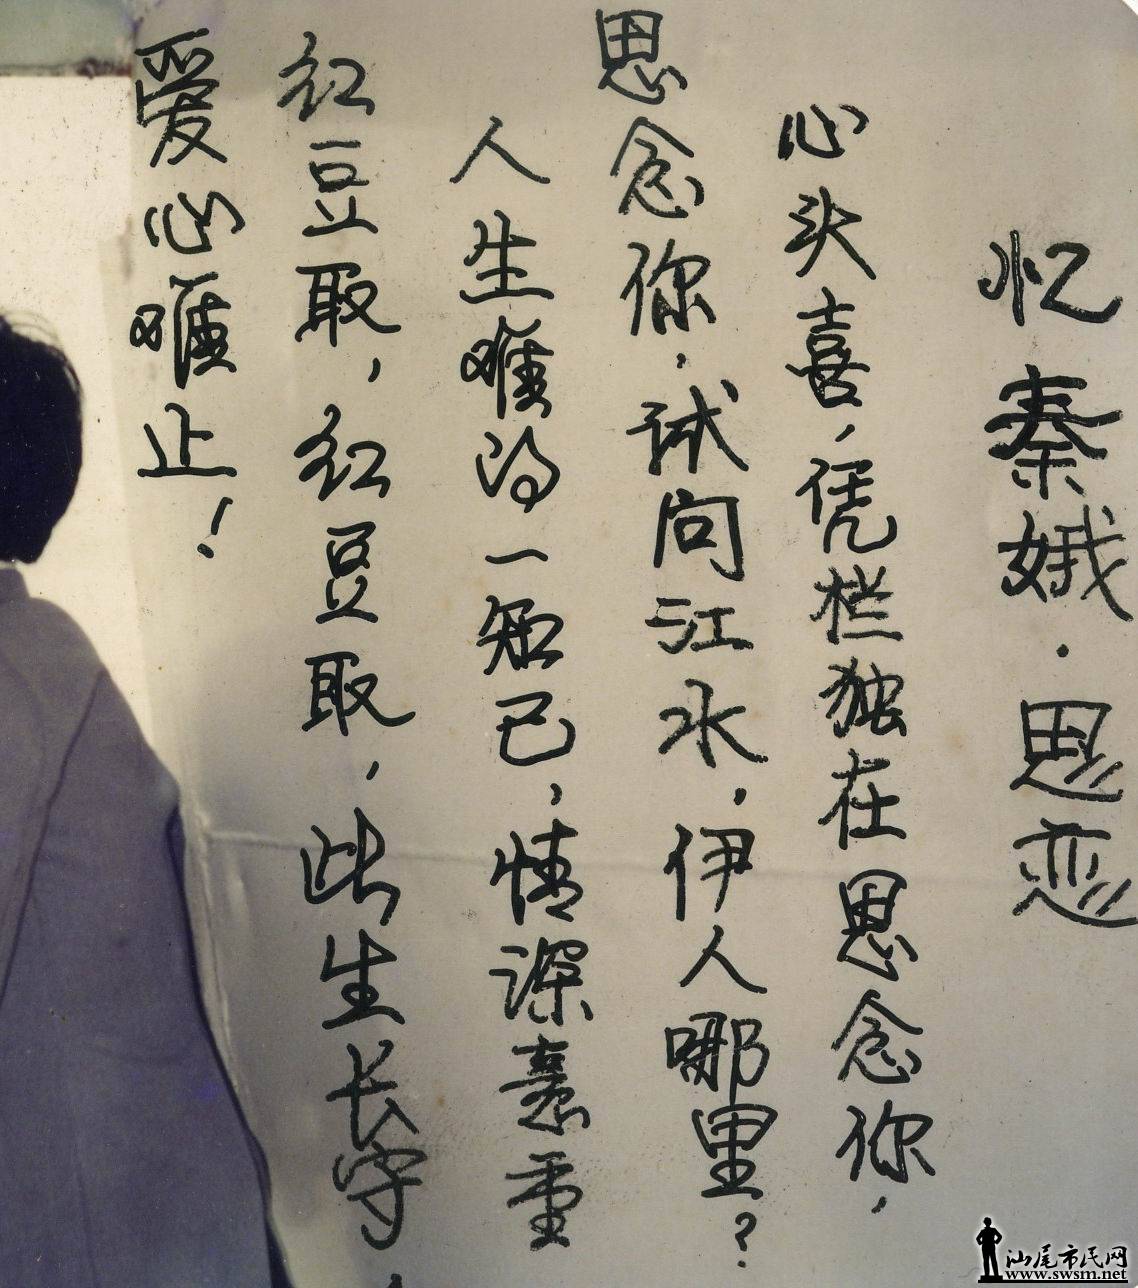 忆秦娥·思恋
心头喜,凭栏独在思念你,
思念你,试问江水,伊人哪里?
人生难得一知己,情深意重
红豆取,红豆取,此生长守,
爱心难止!
汕尾市民网
www.swsm.net